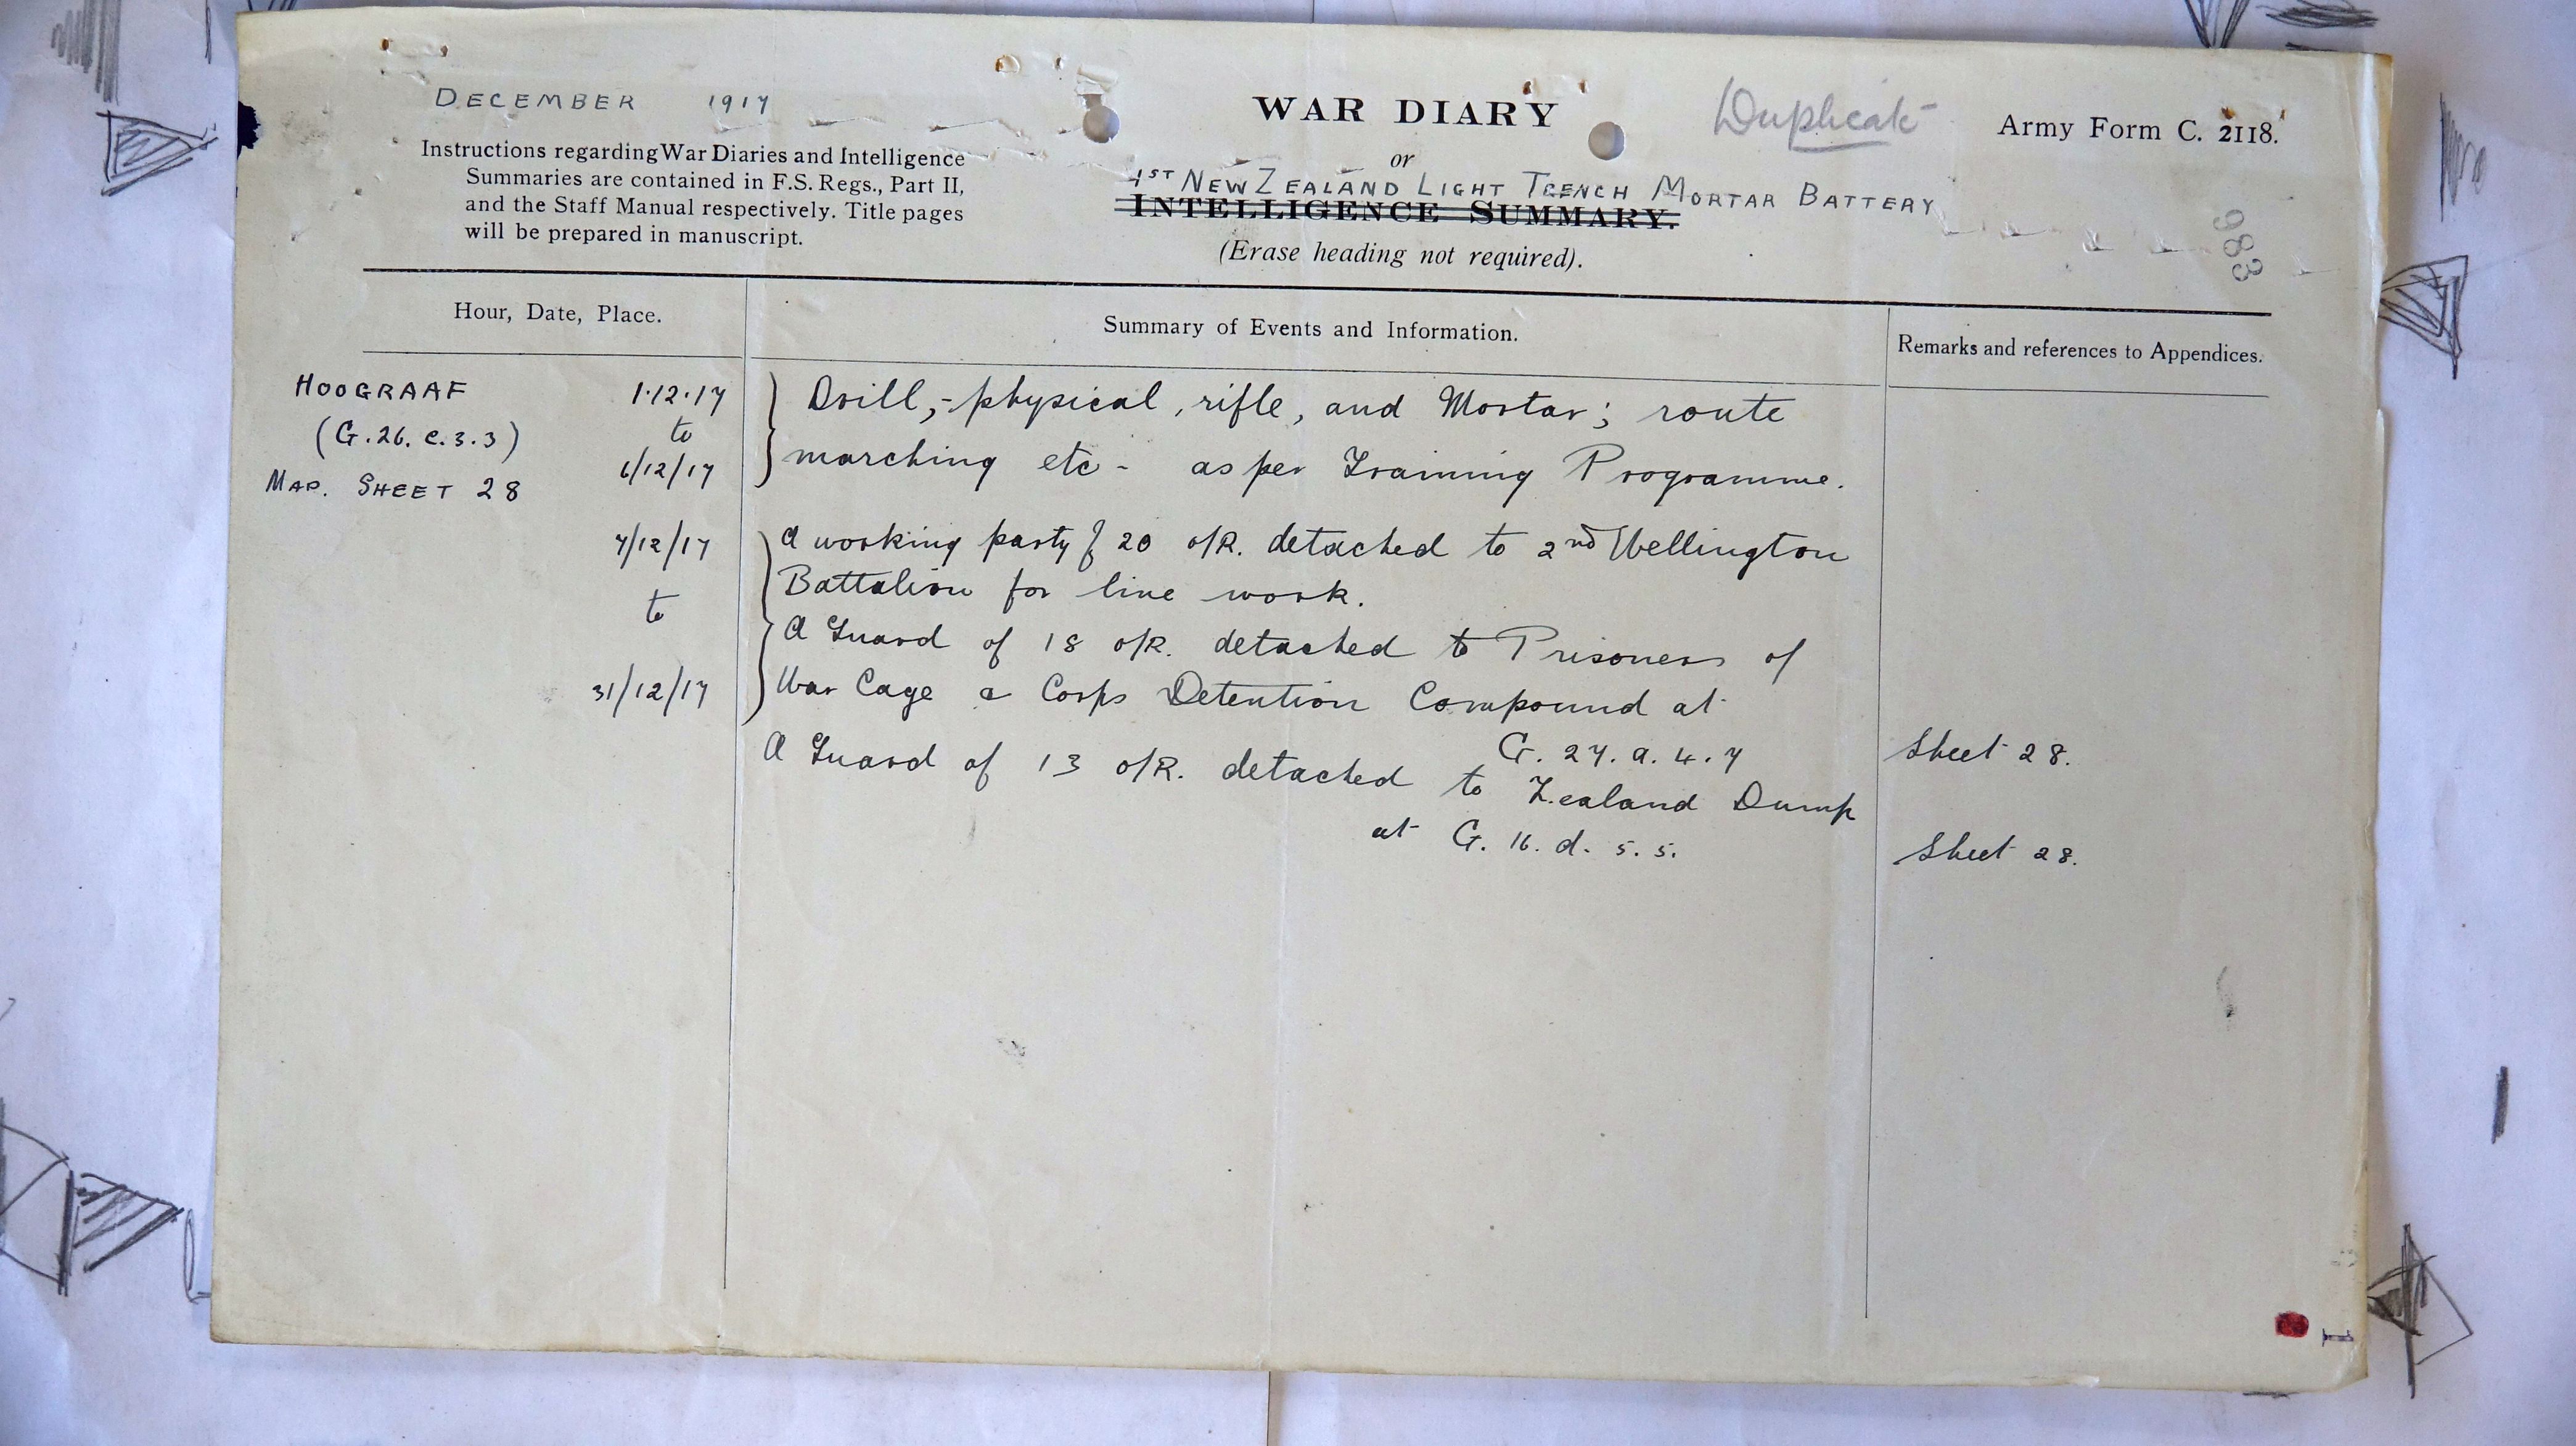 DECEMBER 1917
WAR DIARY
Duplicate
Army Form C. 2118.
Instructions regarding War Diaries and Intelligence
Summaries are contained in F.S. Regs., Part II,
and the Staff Manual respectively. Title pages
will be prepared in manuscript.
or
1ST NEW ZEALAND LIGHT TRENCH MORTAR BATTERY
INTELLIGENCE SUMMARY.
(Erase heading not required).
983
Hour, Date, Place.
Summary of Events and Information.
Remarks and references to Appendices.
HOOGRAAF 1.12.17 Drill,- physical, rifle, and Mortar; route
(G.26.c.3.3) to
MAP. SHEET 28 6/12/17 marching etc - as per Training Programme.
7/12/17 A working party of 20 O/R. detached to 2nd Wellington
Battalion for line work.
to A Guard of 18 O/R. detached to Prisoners of
31/12/17 War Cage & Corps Detention Compound at
G. 27. a. 4. 7 Sheet 28.
A Guard of 13 O/R. detached to Zealand Dump
at G. 16. d. 5. 5. Sheet 28.